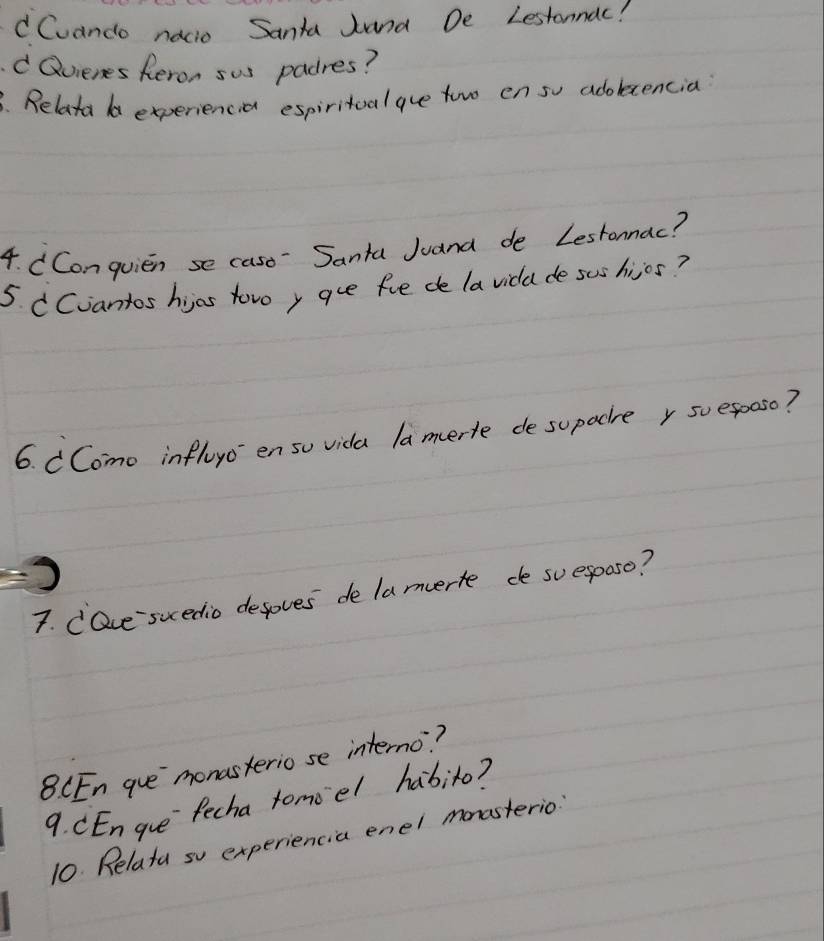 ¿Cuando nacio Santa Juana De Lestonnac?
¿Quienes fueron sus padres?
3. Relata la experiencia espiritual que tuvo en su adolecencia:
4. ¿Con quién se casó Santa Juana de Lestonnac?
5. ¿Cuantos hijos tuvo y que fue de la vida de sus hijos?
6. ¿Cómo influyó en su vida la muerte de su padre y su esposo?
7. ¿Qué sucedio después de la muerte de su esposo?
8. ¿En qué monasterio se internó?
9. ¿En qué fecha tomó el hábito?
10. Relata su experiencia en el monasterio: